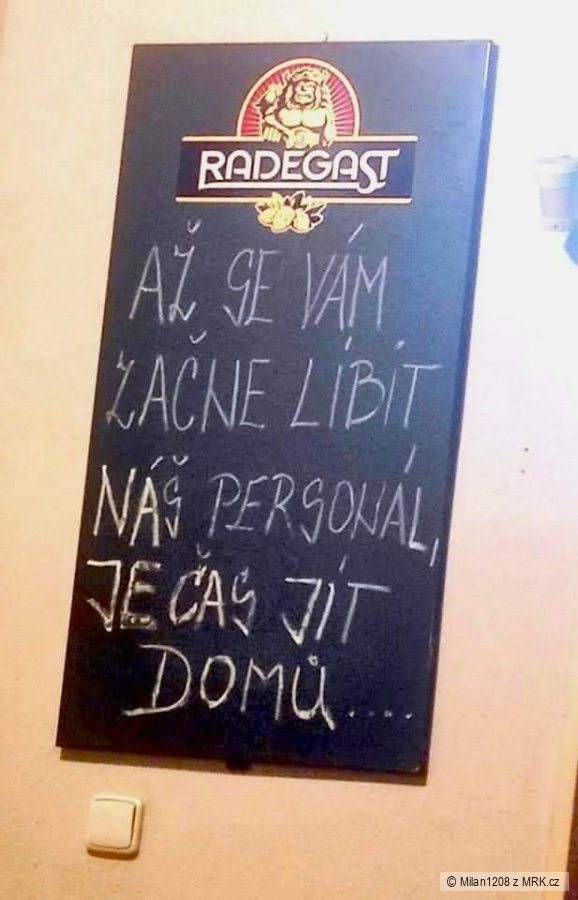 RADEGAST
AŽ SE VÁM
ZAČNE LÍBIT
NÁŠ PERSONÁL,
JE ČAS JÍT
DOMŮ....
© Milan1208 z MRK.cz